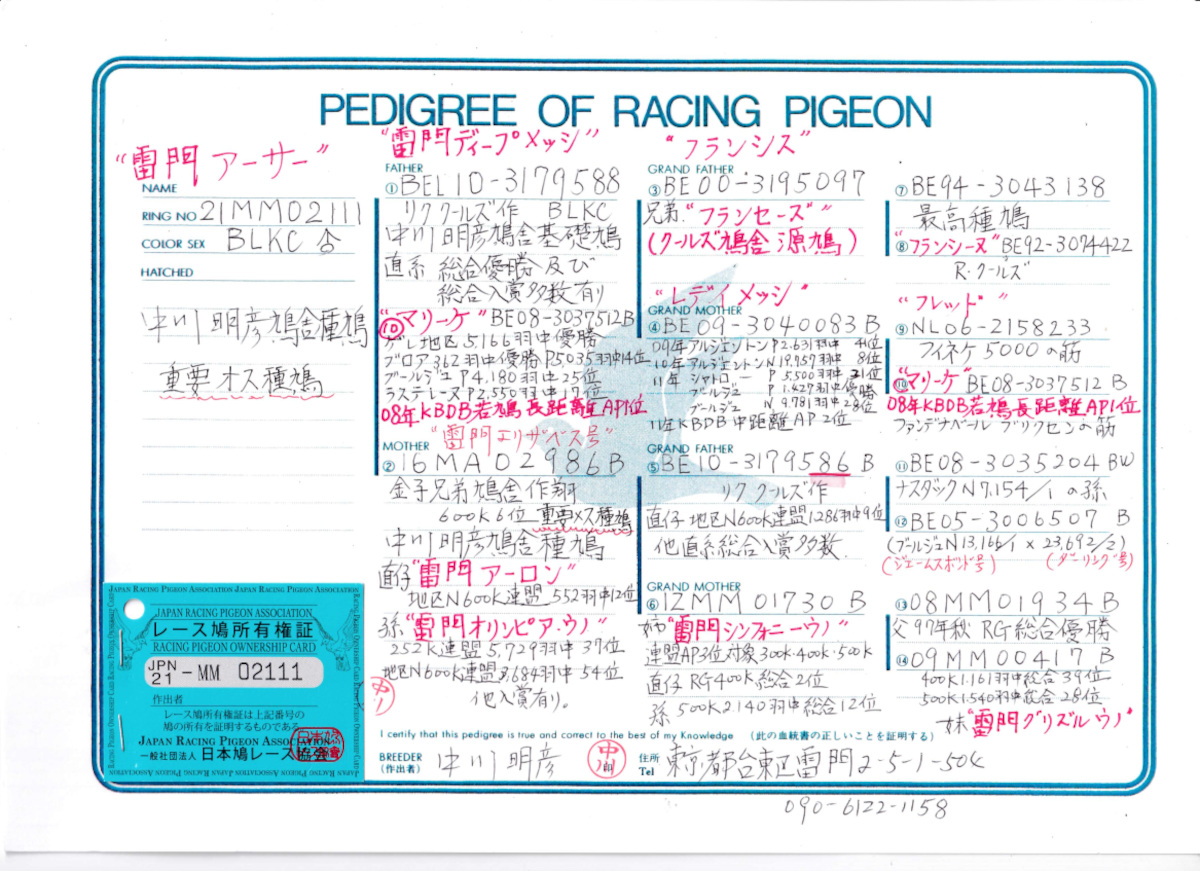 PEDIGREE OF RACING PIGEON
"雷門 アーサー"
NAME
RING NO 21MM02111
COLOR SEX BLKC ♂
HATCHED
中川明彦鳩舎種鳩
重要オス種鳩
JAPAN RACING PIGEON ASSOCIATION
レース鳩所有権証
RACING PIGEON OWNERSHIP CARD
JPN 21 - MM 02111
作出者
レース鳩所有権証は上記番号の
鳩の所有を証明するものである
JAPAN RACING PIGEON ASSOCIATION
一般社団法人 日本鳩レース協会
"雷門ディープメッシ"
FATHER
① BEL10-3179588
リククールズ作 BLKC
中川明彦鳩舎基礎鳩
直系 総合優勝及び
総合入賞多数有り
⑩"マリーケ" BE08-3037512B
地区5166羽中優勝
ブロア362羽中優勝 P5035羽中14位
ブールジュP4,180羽中25位
ラステレーヌP2,550羽中17位
08年KBDB若鳩長距離AP1位
"雷門エリザベス号"
MOTHER
② 16MA02986B
金子兄弟鳩舎作翔
600K6位 重要メス種鳩
中川明彦鳩舎種鳩
直仔"雷門アーロン"
地区N600K連盟 552羽中12位
孫"雷門オリンピア・ウノ"
252K連盟5,729羽中37位
地区N600K連盟3,684羽中54位
他入賞有り。
"フランシス"
GRAND FATHER
③ BE00-3195097
兄弟"フランセーズ"
(クールズ鳩舎 源鳩)
"レディメッシ"
GRAND MOTHER
④ BE09-3040083B
09年アルジェントンP2.631羽中 4位
10年アルジェントンN19.957羽中 8位
11年 シャトロー P 5,500羽中 31位
ブールジュ P 1.427羽中優勝
ブールジュ N 9.781羽中28位
11年KBDB中距離AP2位
GRAND FATHER
⑤ BE10-3179586 B
リククールズ作
直仔 地区N600K連盟1286羽中9位
他直系総合入賞多数.
GRAND MOTHER
⑥ 12MM01730 B
姉"雷門シンフォニーウノ"
連盟AP3位対象300K・400K・500K
直仔 RG400K総合2位
孫 500K2.140羽中総合12位
⑦ BE94-3043138
最高種鳩
⑧"フランシーヌ" BE92-3074422
R・クールズ
"フレッド"
⑨ NL06-2158233
フィネケ5000の筋
⑩"マリーケ" BE08-3037512 B
08年KBDB若鳩長距離AP1位
ファンデナベール ブリクセンの筋
⑪ BE08-3035204 BW
ナスダックN7,154/1 の孫
⑫ BE05-3006507 B
(ブールジュN13,166/1 × 23,692/2)
(ジェームスボンド号) (ダーリング号)
⑬ 08MM01934B
父97年秋RG総合優勝
⑭ 09MM00417 B
400K1.161羽中総合39位
500K1.540羽中総合28位
妹"雷門グリズルウノ"
I certify that this pedigree is true and correct to the best of my Knowledge (此の血統書の正しいことを証明する)
BREEDER (作出者) 中川明彦
住所 Tel 東京都台東区雷門2-5-1-504
090-6122-1158